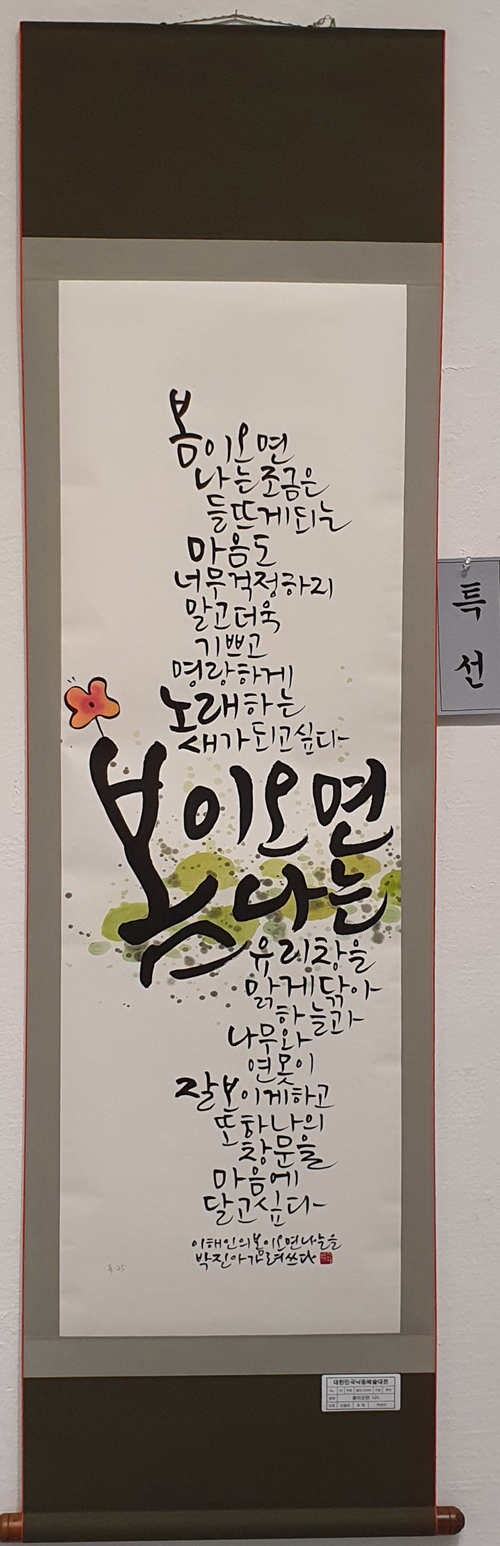 봄이오면
나는조금은
들뜨게되는
마음도
너무걱정하지
말고더욱
기쁘고
명랑하게
노래하는
새가되고싶다
봄이오면
나는
유리창을
맑게닦아
하늘과
나무와
연못이
잘보이게하고
또하나의
창문을
마음에
달고싶다
이해인의봄이오면나는을
박진아가려쓰다
특
선
대한민국낙동예술대전